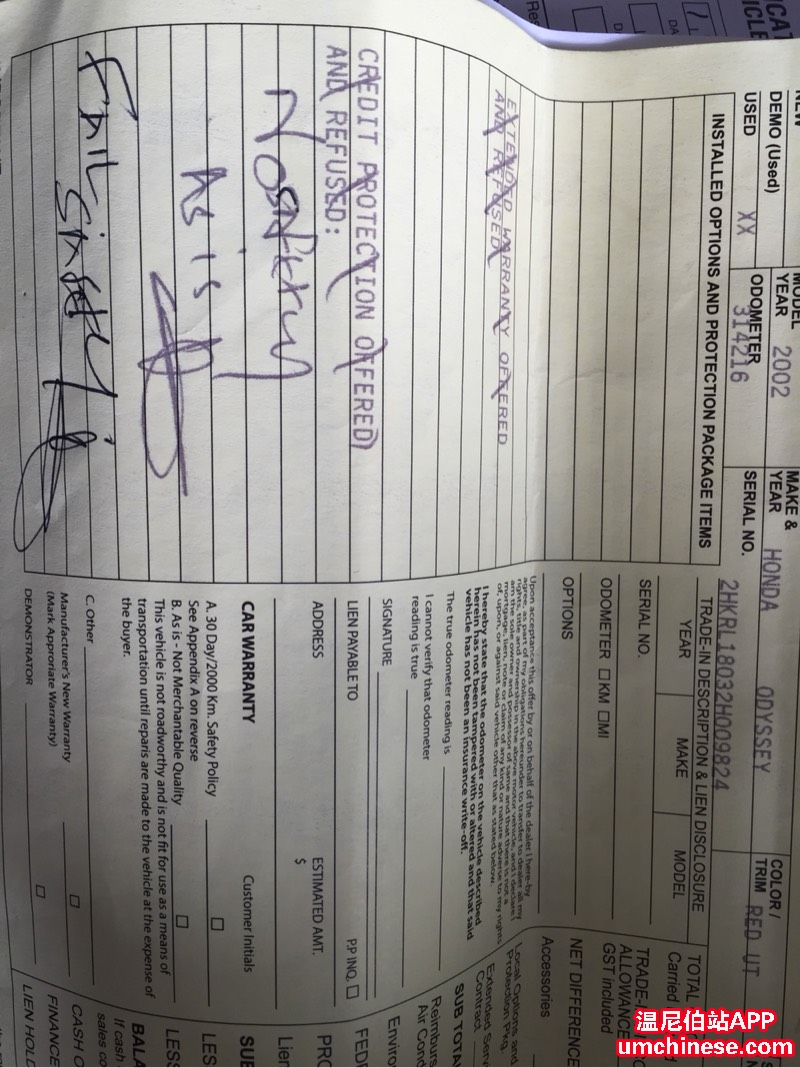 NEW
DEMO (Used)
USED XX
MODEL
YEAR 2002
ODOMETER
314216
MAKE &
YEAR HONDA ODYSSEY
SERIAL NO.
2HKRL18032H009824
COLOR /
TRIM RED UT
INSTALLED OPTIONS AND PROTECTION PACKAGE ITEMS
EXTENDED WARRANTY OFFERED
AND REFUSED
CREDIT PROTECTION OFFERED
AND REFUSED:
No
As is
Fail
TRADE-IN DESCRIPTION & LIEN DISCLOSURE
YEAR MAKE MODEL
SERIAL NO.
ODOMETER □ KM □ MI
OPTIONS
Upon acceptance this offer by or on behalf of the dealer I here-by
agree, as part of my obligations hereunder to transfer to dealer all my
rights, title and ownership in the above motor vehicle, and I declare I
am the sole owner and possessor of same and that there is not a
mortgage, lien, note or claim of any kind or nature adverse to my rights
of, upon, or against said vehicle other that as stated below.
I hereby state that the odometer on the vehicle described
herein has not been tampered with or altered and that said
vehicle has not been an insurance write-off.
The true odometer reading is
I cannot verify that odometer
reading is true
SIGNATURE
LIEN PAYABLE TO P.P INQ. □
ADDRESS ESTIMATED AMT.
$
CAR WARRANTY Customer Initials
A. 30 Day/2000 Km. Safety Policy □
See Appendix A on reverse
B. As is - Not Merchantable Quality □
This vehicle is not roadworthy and is not fit for use as a means of
transportation until reparis are made to the vehicle at the expense of
the buyer.
C. Other
Manufacturer's New Warranty □
(Mark Approriate Warranty)
DEMONSTRATOR □
TOTAL
Carried
TRADE-
ALLOWANCE
GST included
NET DIFFERENCE
Accessories
Local Options and
Protection Pkg.
Extended Serv
Contract
SUB TOTA
Reimburs
Air Cond
Enviro
FED
PRO
Lien
SUB
LES
LESS
BALA
If cash
sales co
CASH O
FINANCE
LIEN HOLD
温尼伯站APP
umchinese.com